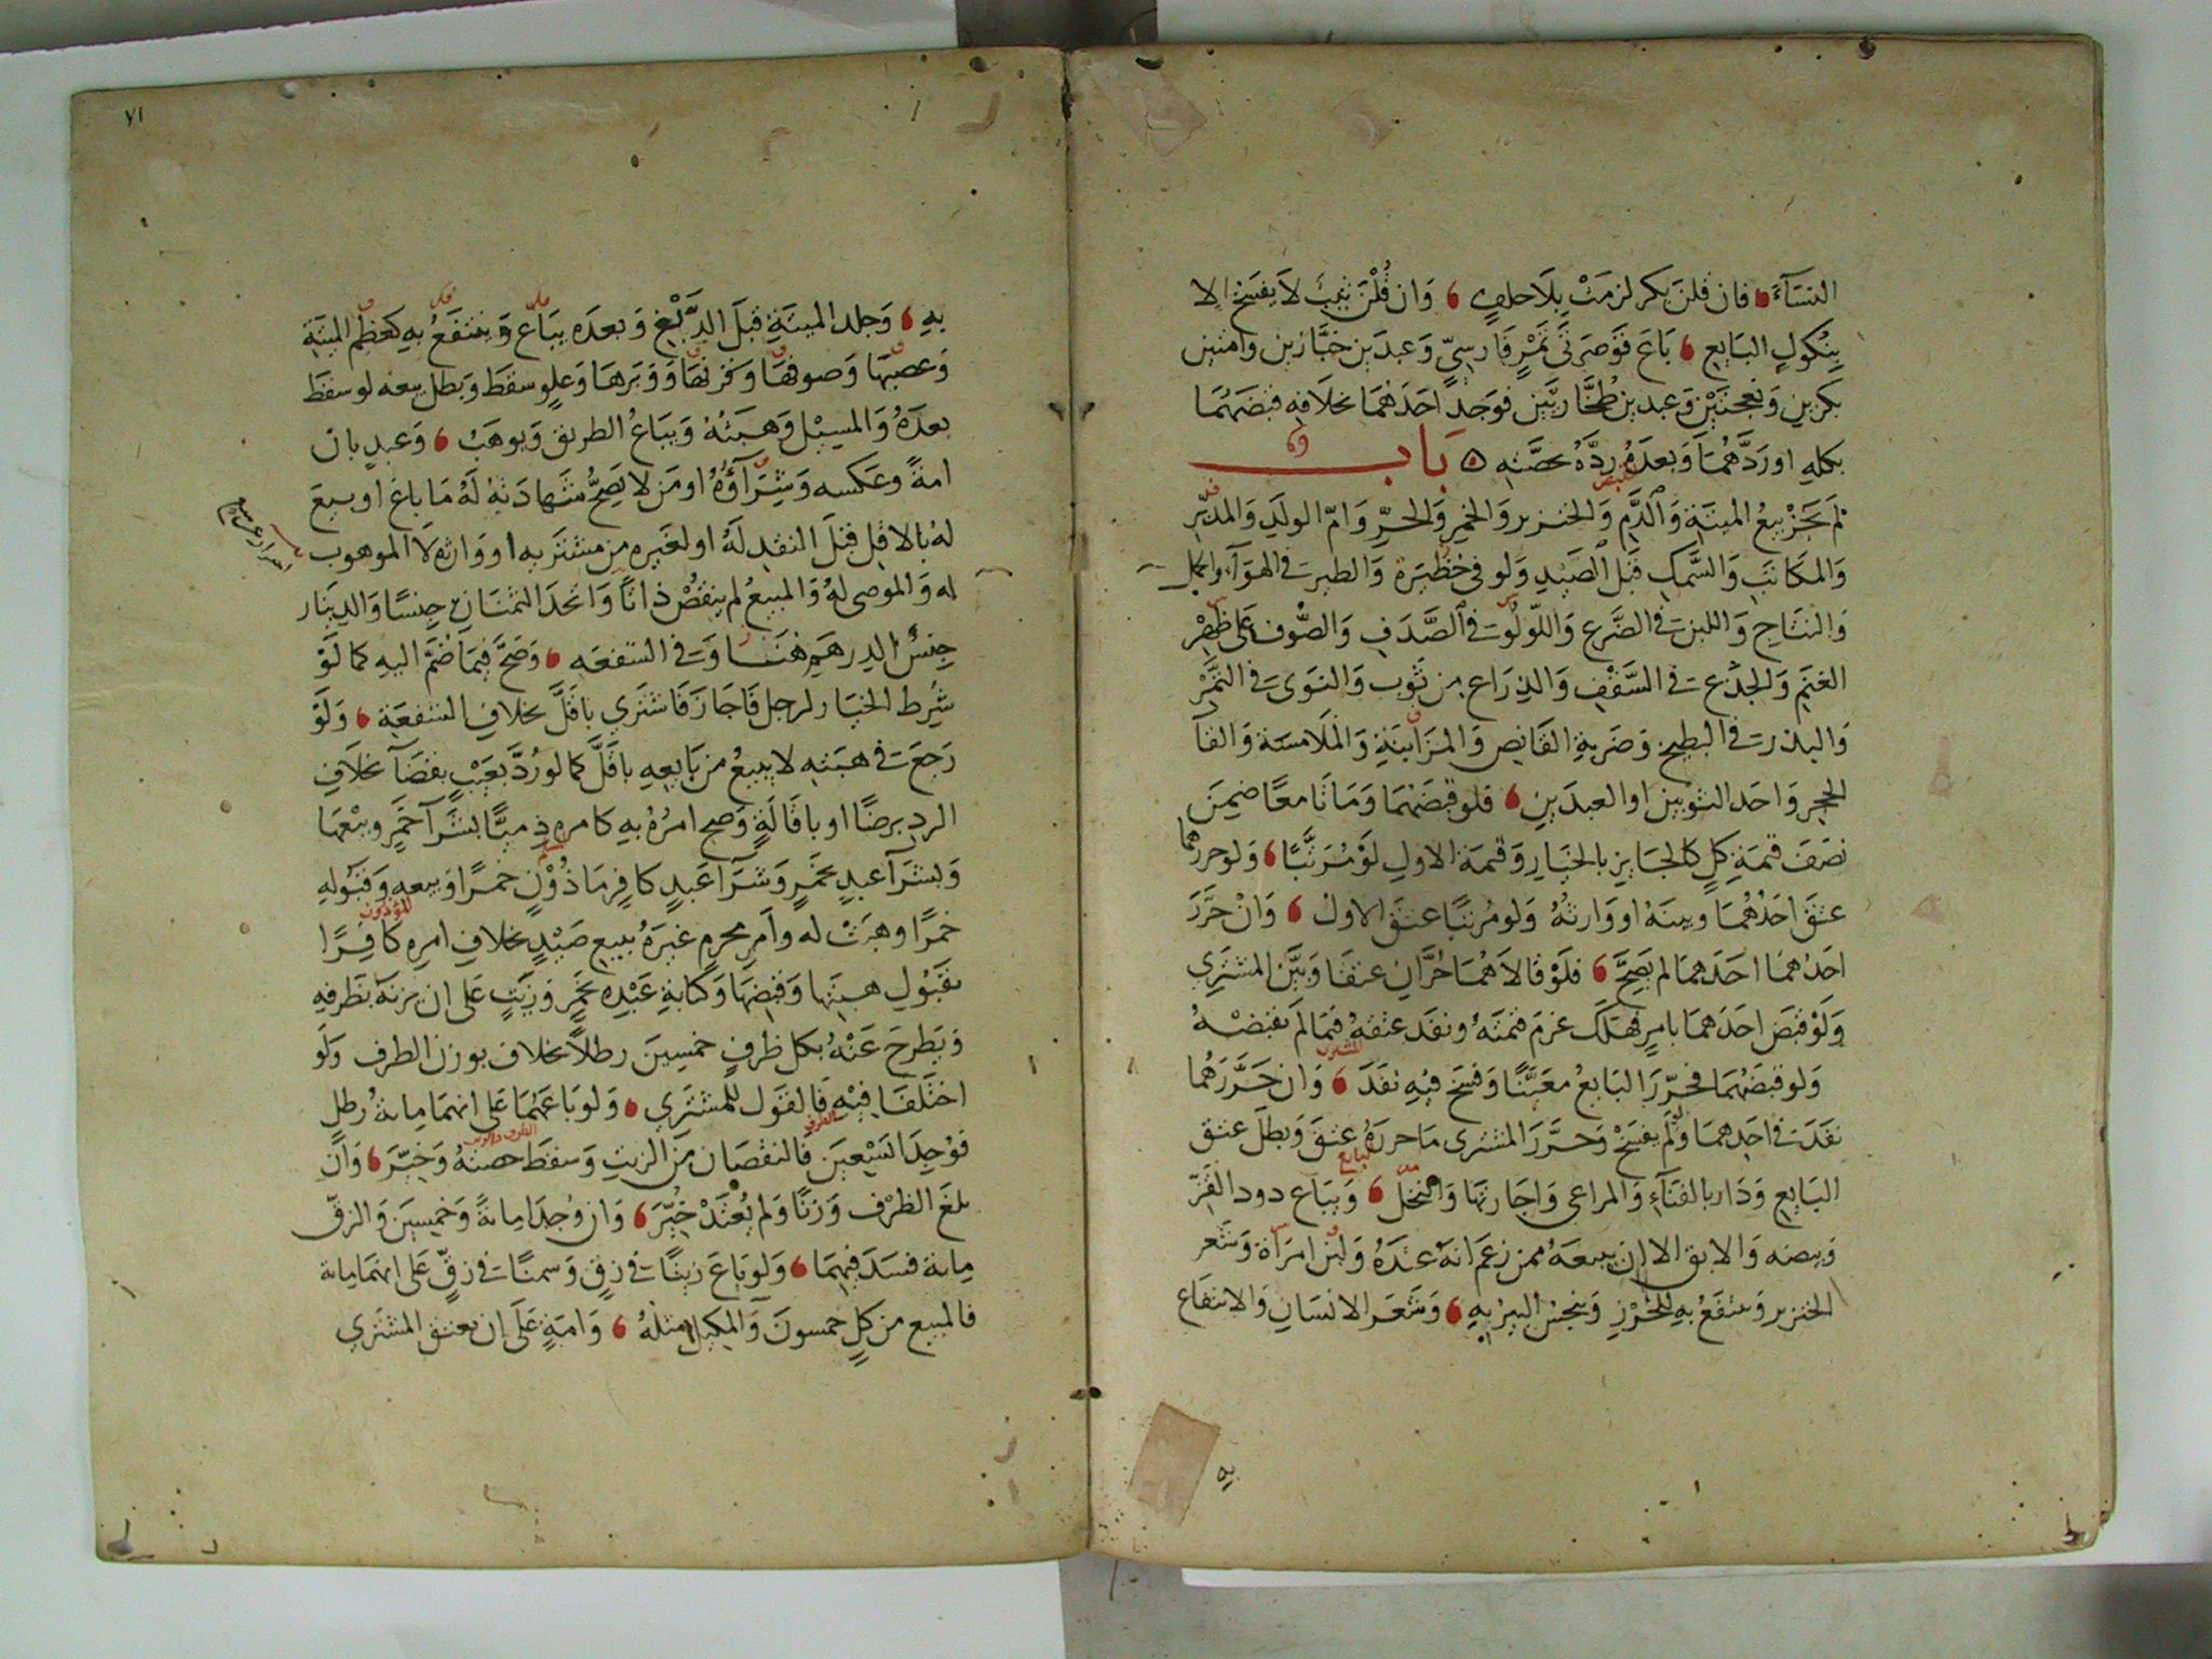 النسَآءَ فان قلنَ بكر لزمَتْ بِلَا حلفٍ وَان قُلْنَ ثيبٌ لاَ يفسَخ الا
بِنُكُولِ البَايع بَاعَ قَوْصَرتَيْ تَمْرٍ فَارسِيٍّ وَعبدَين خَبَّازين وَامتين
بكرين وَنعجتَيْن وَعبدين طُخَاريَّين فوَجد احَدَهُمَا بخلَافهِ قبضَهُمَا
بكلهِ اورَدَّهُمَا وَبعدَهُ ردَّهُ بحصَّتهِ بَابٌ
لم يَجُزْ بيعُ الميتَةِ وَالدَّمِ وَالخنزير وَالخمرِ وَالحرِّ وَامّ الولَدِ وَالمدبّر
وَالمكَاتبِ وَالسَّمكِ قَبلَ الصَيْدِ وَلو في حَظيْرَةٍ وَالطير في الهوَآءِ والحمل
وَالنتَاجِ وَاللبن في الضَّرعِ وَاللّولُوء في الصَّدَفِ وَالصُّوف عَلَى ظهْرِ
الغنَمِ وَالجذْعِ في السَّقْفِ وَالذرَاع من ثَوبٍ وَالنوَى في التَّمْرِ
وَالبذر في البطيخ وَضَربةِ القَانِصِ وَالمزَابنَةِ وَالمُلَامسَة وَالقآ
الحجرِ وَاحَد الثوبين اوالعبدَينِ فلو قبضَهُمَا وَمَاتَا معًا ضمِنَ
نصَفَ قيمَةِ كلٍ كالجَايزِ بالخيَارِ وَقيمَةَ الاولِ لوْ مُرَتَّبًا وَلو حررهما
عتقَ احَدُهُمَا وبينَهُ او وَارثهُ وَلو مُرتبًا عتقَ الاول وَانْ حَرَّرَ
احَدُهمَا احَدَهمَا لم يَصِحَّ فلَوْ قالاَ هُمَا حُرَّانِ عتقَا وَبيَّن المشترِي
وَلَوْ قبَضَ احَدَهمَا بامرٍ فهَلَكَ غرمَ قيمَتَهُ ونفذ عتقهُ فيمَا لَم يقبضْهُ
وَلو قبضَهُمَا فحرَّرَ البَايعُ معَيَّنًا وَفسَخ فيهِ نفَذَ وَان حَرَّرَهُمَا
نفَذَ في احَدِهمَا وَلَم يفسَخْ وَحرَّرَ المشترى مَا حررهُ عتقَ وَبطلَ عتق
البَايعِ وَدَار بالفنَآءِ وَالمراعى وَاجَارتهَا وَالنحلُ وَيبَاع دود القَزّ
وَبيضه وَالابق الا ان يبيعَهُ ممن زعَمَ انهُ عندَهُ وَلبن امرَاة وَشعر
الخنزير وَينتفَعُ بهِ للخَرْزِ وَينجس البيرُ بهِ وَشعَر الانسَانِ وَالانتفاع
به
٧١
بهِ وَجلد الميتَةِ قبلَ الدَّبْغِ وَبعدَه يبَاعُ وَينتفَعُ بهِ كعظم الميتَة
وَعصبهَا وَصوفهَا وَقرنهَا وَوَبَرهَا وَعلوٍ سقطَ وَبطل بيعه لو سقطَ
بعدَهُ وَالمسيْل وَهبَتُهُ وَيبَاعُ الطريق وَيوهَبُ وَعبدٍ بان
امةً وَعكسه وَشِرَآؤُهُ او مَن لا يَصِحُّ شهادَتهُ لَهُ مَا باعَ او بيعَ
لهُ بالاقل قبلَ النقدِ لَهُ او لغَيرهِ من مشتَر به او وَارثهِ لا الموهوب
له وَالموصى لهُ وَالمبيعُ لم ينقصْ ذاتًا وَاتحدَ الثمنَانِ جِنسًا وَالدينَار
جِنسُ الدرهَم هنَا وَفى الشفعَه وَصَحَّ فيمَا ضُمَّ اليهِ كما لوْ
شُرط الخيَار لرجل فَاجَازَ فَاشترَي باقَلَّ بخلافِ الشفعَةِ وَلوْ
رَجعَ في هبَتهِ لا يبيعُ من بَايعِهِ باقَلَّ كما لو رُدَّ بعَيْبٍ بقضآءٍ بخلَافِ
الردِ برضًا او باقَالَةٍ وَصح امرُهُ بهِ كامرهِ ذميًّا بشرآ خمَرٍ وبيْعهَا
وَبشرَآ عبدٍ بخمَرٍ وَشرَآ عَبدٍ كافِرٍ مَاذُوْنٍ خمرًا وَبيعهِ وَقبُولهِ
المؤذون
خمرًا وهبَتْ له وَامرِ محرمٍ غيرَهُ ببيعِ صَيْدٍ بخلافِ امرهِ كافِرًا
بقبُولِ هبتِهَا وَقبضِهَا وَكتابةِ عَبْدِهِ بخمرٍ وَزيتٍ عَلى ان يزنهُ بظرفهِ
وَيَطرحَ عَنْهُ بكل ظرفٍ خمسِينَ رطلاً بخلاف بوزن الظرف وَلَو
اختَلفَا فيْهِ فَالقَول للمشترِي وَلو بَاعهُمَا عَلى انهمَا ماىةُ رطل
فوُجدَا تسْعِينَ فَالنقصَان منَ الزيتِ وَسقطَ حصتهُ وَخيّرَ وَان
بلغَ الظرْف وَزنًا وَلم يُعْتَدْ خُيّرَ وَان وُجدَا ماىةً وَخمسِينَ وَالزقّ
ماىة فسَدَ فيهمَا وَلو بَاعَ زيتًا في زقٍ وَسمنًا في زقٍّ عَلَى انهمَا ماىة
فالمبيع من كلٍ خمسونَ وَالمكيل مثلهُ وَامةٍ عَلَى ان يعتق المشترِي